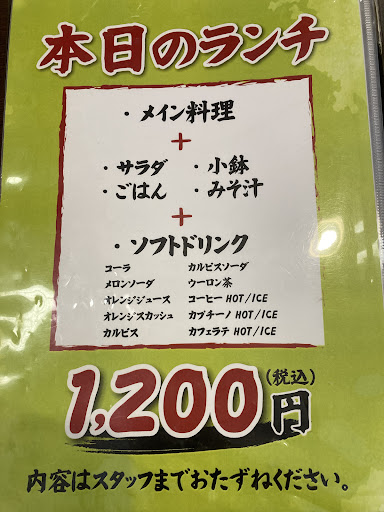 本日のランチ
・メイン料理
+
・サラダ ・小鉢
・ごはん ・みそ汁
+
・ソフトドリンク
コーラ カルピスソーダ
メロンソーダ ウーロン茶
オレンジジュース コーヒー HOT/ICE
オレンジスカッシュ カプチーノ HOT/ICE
カルピス カフェラテ HOT/ICE
1,200円(税込)
内容はスタッフまでおたずねください。